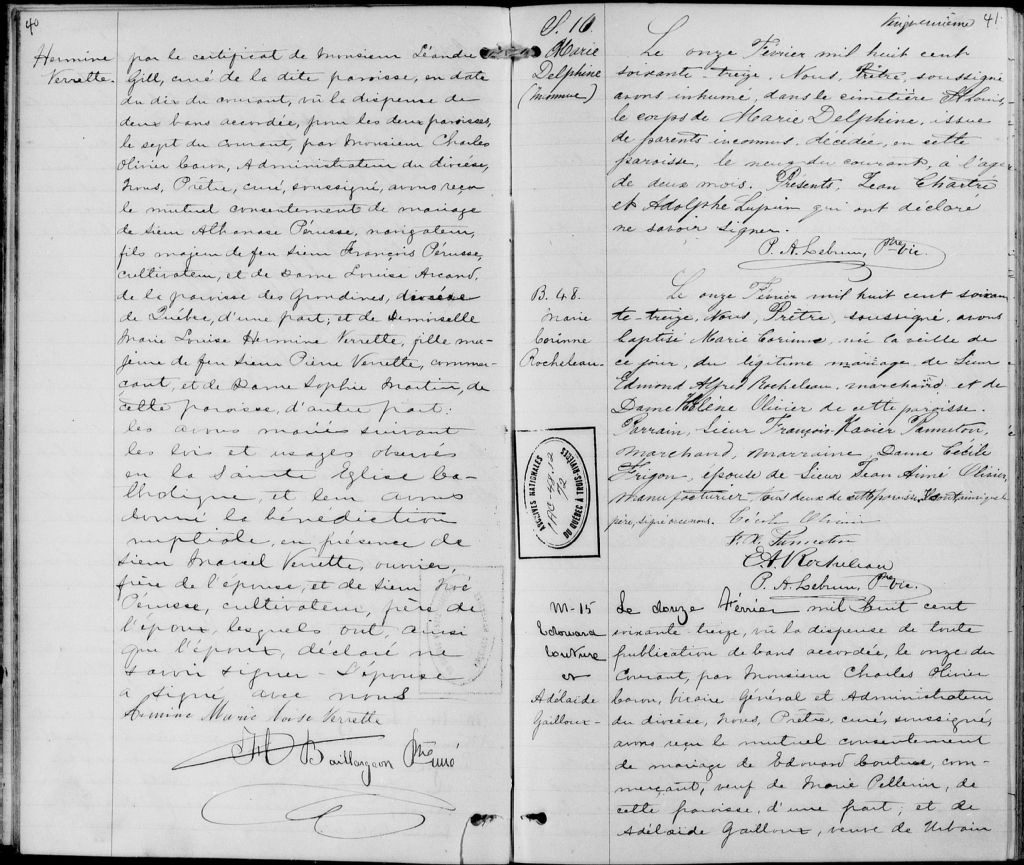 40
Hermine
Verrette.
par le certificat de Monsieur Léandre
Gill, curé de la dite paroisse, en date
du dix du courant, vû la dispense de
deux bans accordée, pour les deux paroisses,
le sept du courant, par Monsieur Charles
Olivier Caron, Administrateur du diocèse,
Nous, Prêtre, curé, soussigné, avons reçu
le mutuel consentement de mariage
de Sieur Althanase Pérusse, navigateur,
fils majeur de feu Sieur François Pérusse,
cultivateur, et de Dame Louise Arcand,
de la paroisse des Grondines, diocèse
de Québec, d'une part; et de Demoiselle
Marie Louise Hermine Verrette, fille ma-
jeure de feu Sieur Pierre Verrette, commer-
çant, et de Dame Sophie Martin, de
cette paroisse, d'autre part:
les avons mariés suivant
les lois et usages observés
en la Sainte Eglise Ca-
tholique, et leur avons
donné la bénédiction
nuptiale, en présence de
Sieur Marcel Verrette, ouvrier,
frère de l'épouse, et de Sieur Noé
Pérusse, cultivateur, frère de
l'époux, lesquels ont, ainsi
que l'époux, déclaré ne
savoir signer - L'épouse
a signé avec nous
Armine Marie Loise Verrette
Baillargeon Ptre curé
41
S. 10.
Marie
Delphine
(Inconnue)
Le onze Février mil huit cent
soixante-treize, Nous, Prêtre, soussigné
avons inhumé, dans le cimetière St Louis,
le corps de Marie Delphine, issue
de parents inconnus, décédée, en cette
paroisse, le neuf du courant, à l'âge
de deux mois. Présents, Jean Chartré
et Adolphe Lupien qui ont déclaré
ne savoir signer.
P. A. Lebrun, Ptre vic.
B. 48.
Marie
Corinne
Rocheleau
Le onze Février mil huit cent soixan-
te-treize, Nous, Prêtre, soussigné, avons
baptisé Marie Corinne, née la veille de
ce jour, du légitime mariage de Sieur
Edmond Alfred Rocheleau, marchand et de
Dame Hélène Olivier de cette paroisse.
Parrain, Sieur François-Xavier Panneton,
marchand, marraine, Dame Cécile
Frigon, épouse de Sieur Jean Aimé Olivier,
manufacturier, tous deux de cette paroisse,
père, signé avec nous. Cécile Olivier
F. X. Panneton
E A. Rocheleau
P. A. Lebrun, Ptre vic.
ARCHIVES NATIONALES
DU QUÉBEC À TROIS-RIVIÈRES
M-15
Edouard
Couture
et
Adélaide
Gailloux -
Le douze Février mil huit cent
soixante-treize, vû la dispense de toute
publication de bans accordée, le onze du
Courant, par Monsieur Charles Olivier
Caron, Vicaire Général et Administrateur
du diocèse, Nous, Prêtre, curé, soussigné,
avons reçu le mutuel consentement
de mariage de Edouard Couture, com-
merçant, veuf de Marie Pellerin, de
cette paroisse, d'une part; et de
Adélaide Gailloux, veuve de Urbain